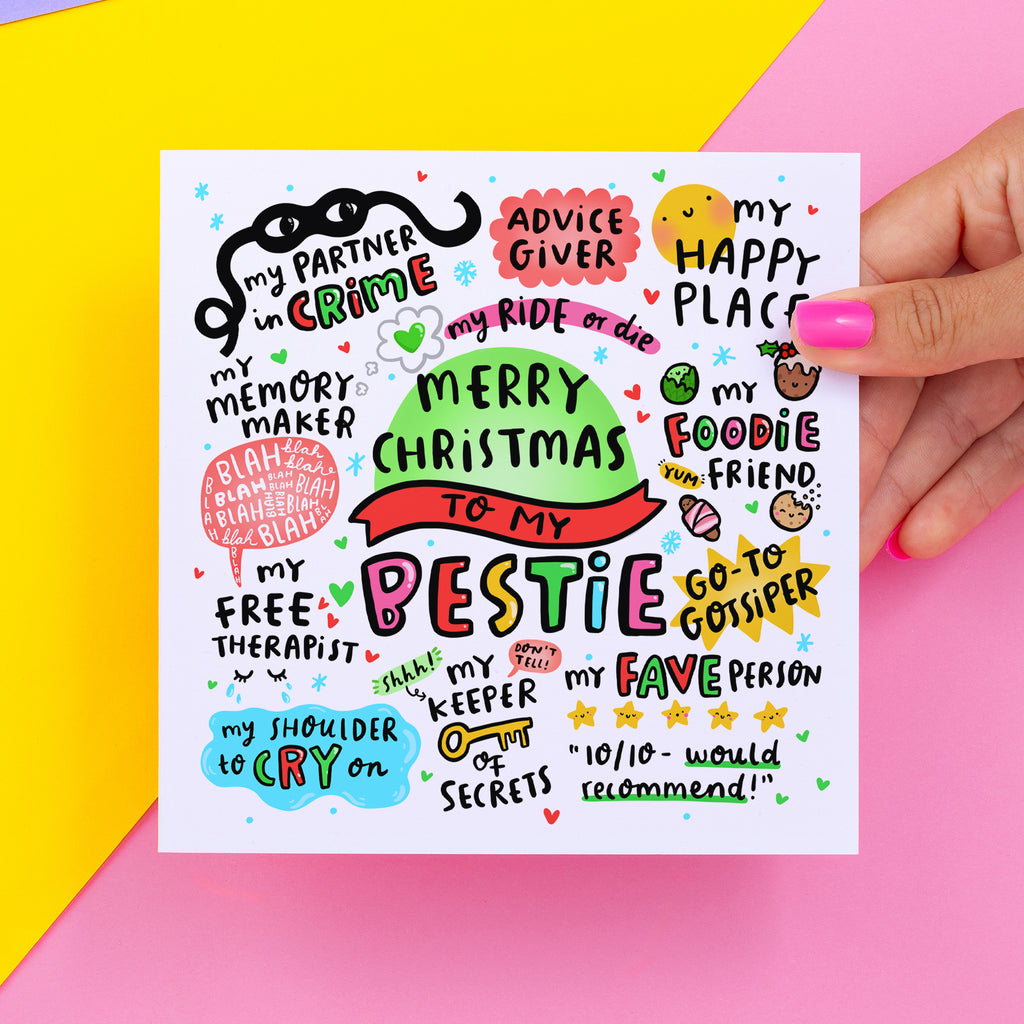 my PARTNER
in CRiME
ADViCE
GiVER
MY
HAPPY
PLACE
my RiDE or die
MY
MEMORY
MAKER
MERRY
CHRiSTMAS
TO MY
BESTiE
MY
FOODiE
YUM FRiEND
BLAH blah
BLAH blah
BLAH BLAH BLAH
BLAH BLAH
BLAH BLAH
blah BLAH
BLAH
MY
FREE
THERAPiST
GO-TO
GOSSiPER
shhh!
MY
KEEPER
OF
SECRETS
DON'T
TELL!
MY FAVE PERSON
"10/10- would
recommend!"
my SHOULDER
to CRY on